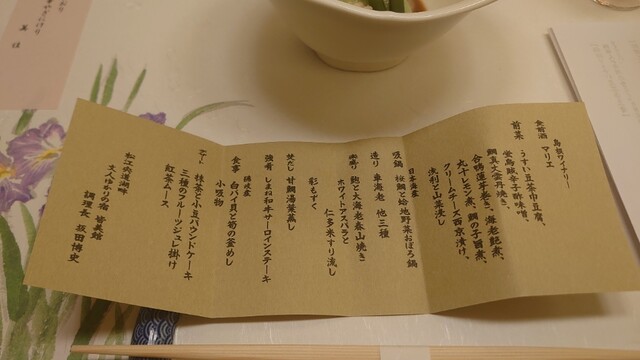 島根ワイナリー
食前酒 マリエ
前菜 うすい豆茶巾豆腐、
蛍烏賊辛子酢味噌、
鯛真丈雲丹焼き、
合鴨蓮芋巻き、海老艶煮、
丸十レモン煮、鯛の子旨煮、
クリームチーズ西京漬け、
浅利と山菜浸し
日本海産
吸鍋 桜鯛と蛤地野菜おぼろ鍋
造り 車海老 他三種
鮑と大海老奉山焼き
ホワイトアスパラと
仁多米すり流し
彩もずく
焚だし 甘鯛湯葉蒸し
強肴 しまね和牛サーロインステーキ
隠岐産
食事 白バイ貝と筍の釜めし
小吸物
抹茶と小豆パウンドケーキ
三種のフルーツジュレ掛け
紅茶ムース
松江宍道湖畔
文人ゆかりの宿 皆美館
調理長 坂田博史